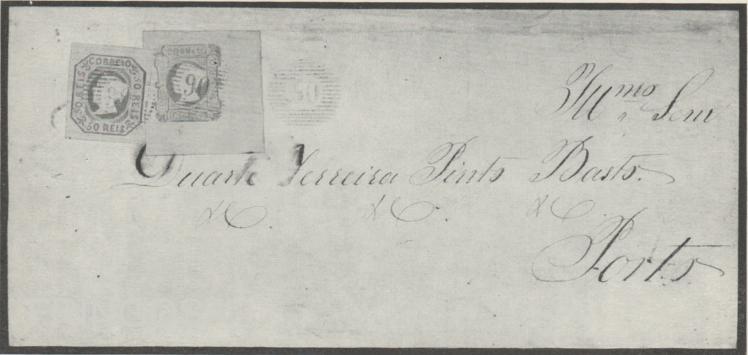 CORREIO 50 REIS 50 REIS 50 REIS
CORREIO
50
Illmo Senr
Duarte Ferreira Pinto Basto.
&C. &C. &C
Porto